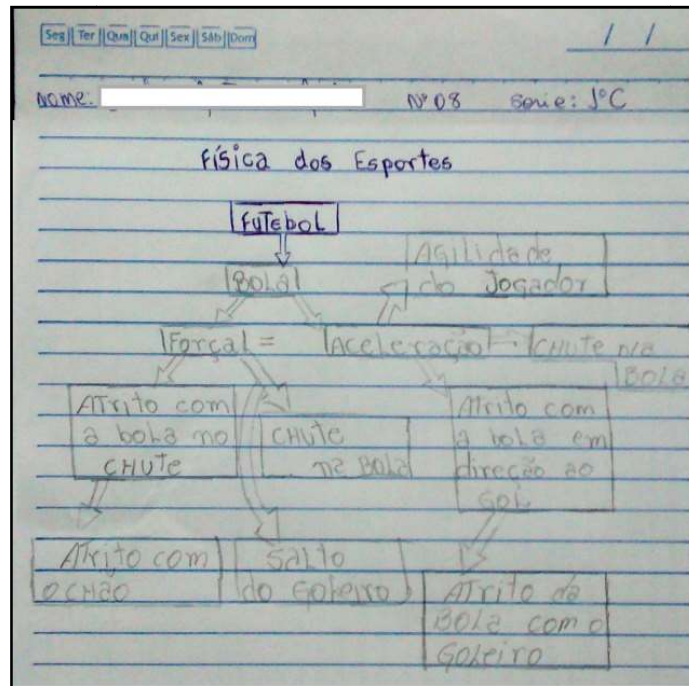 Seg Ter Qua Qui Sex Sáb Dom
/ /
Nome: Nº 08 Serie: 1ºC
Física dos Esportes
Futebol
Bola
Agilidade
do Jogador
Força =
Aceleração
Chute na
Bola
Atrito com
a bola no
chute
Chute
na Bola
Atrito com
a bola em
direção ao
Gol
Atrito com
o chão
Salto
do Goleiro
Atrito da
Bola com o
Goleiro